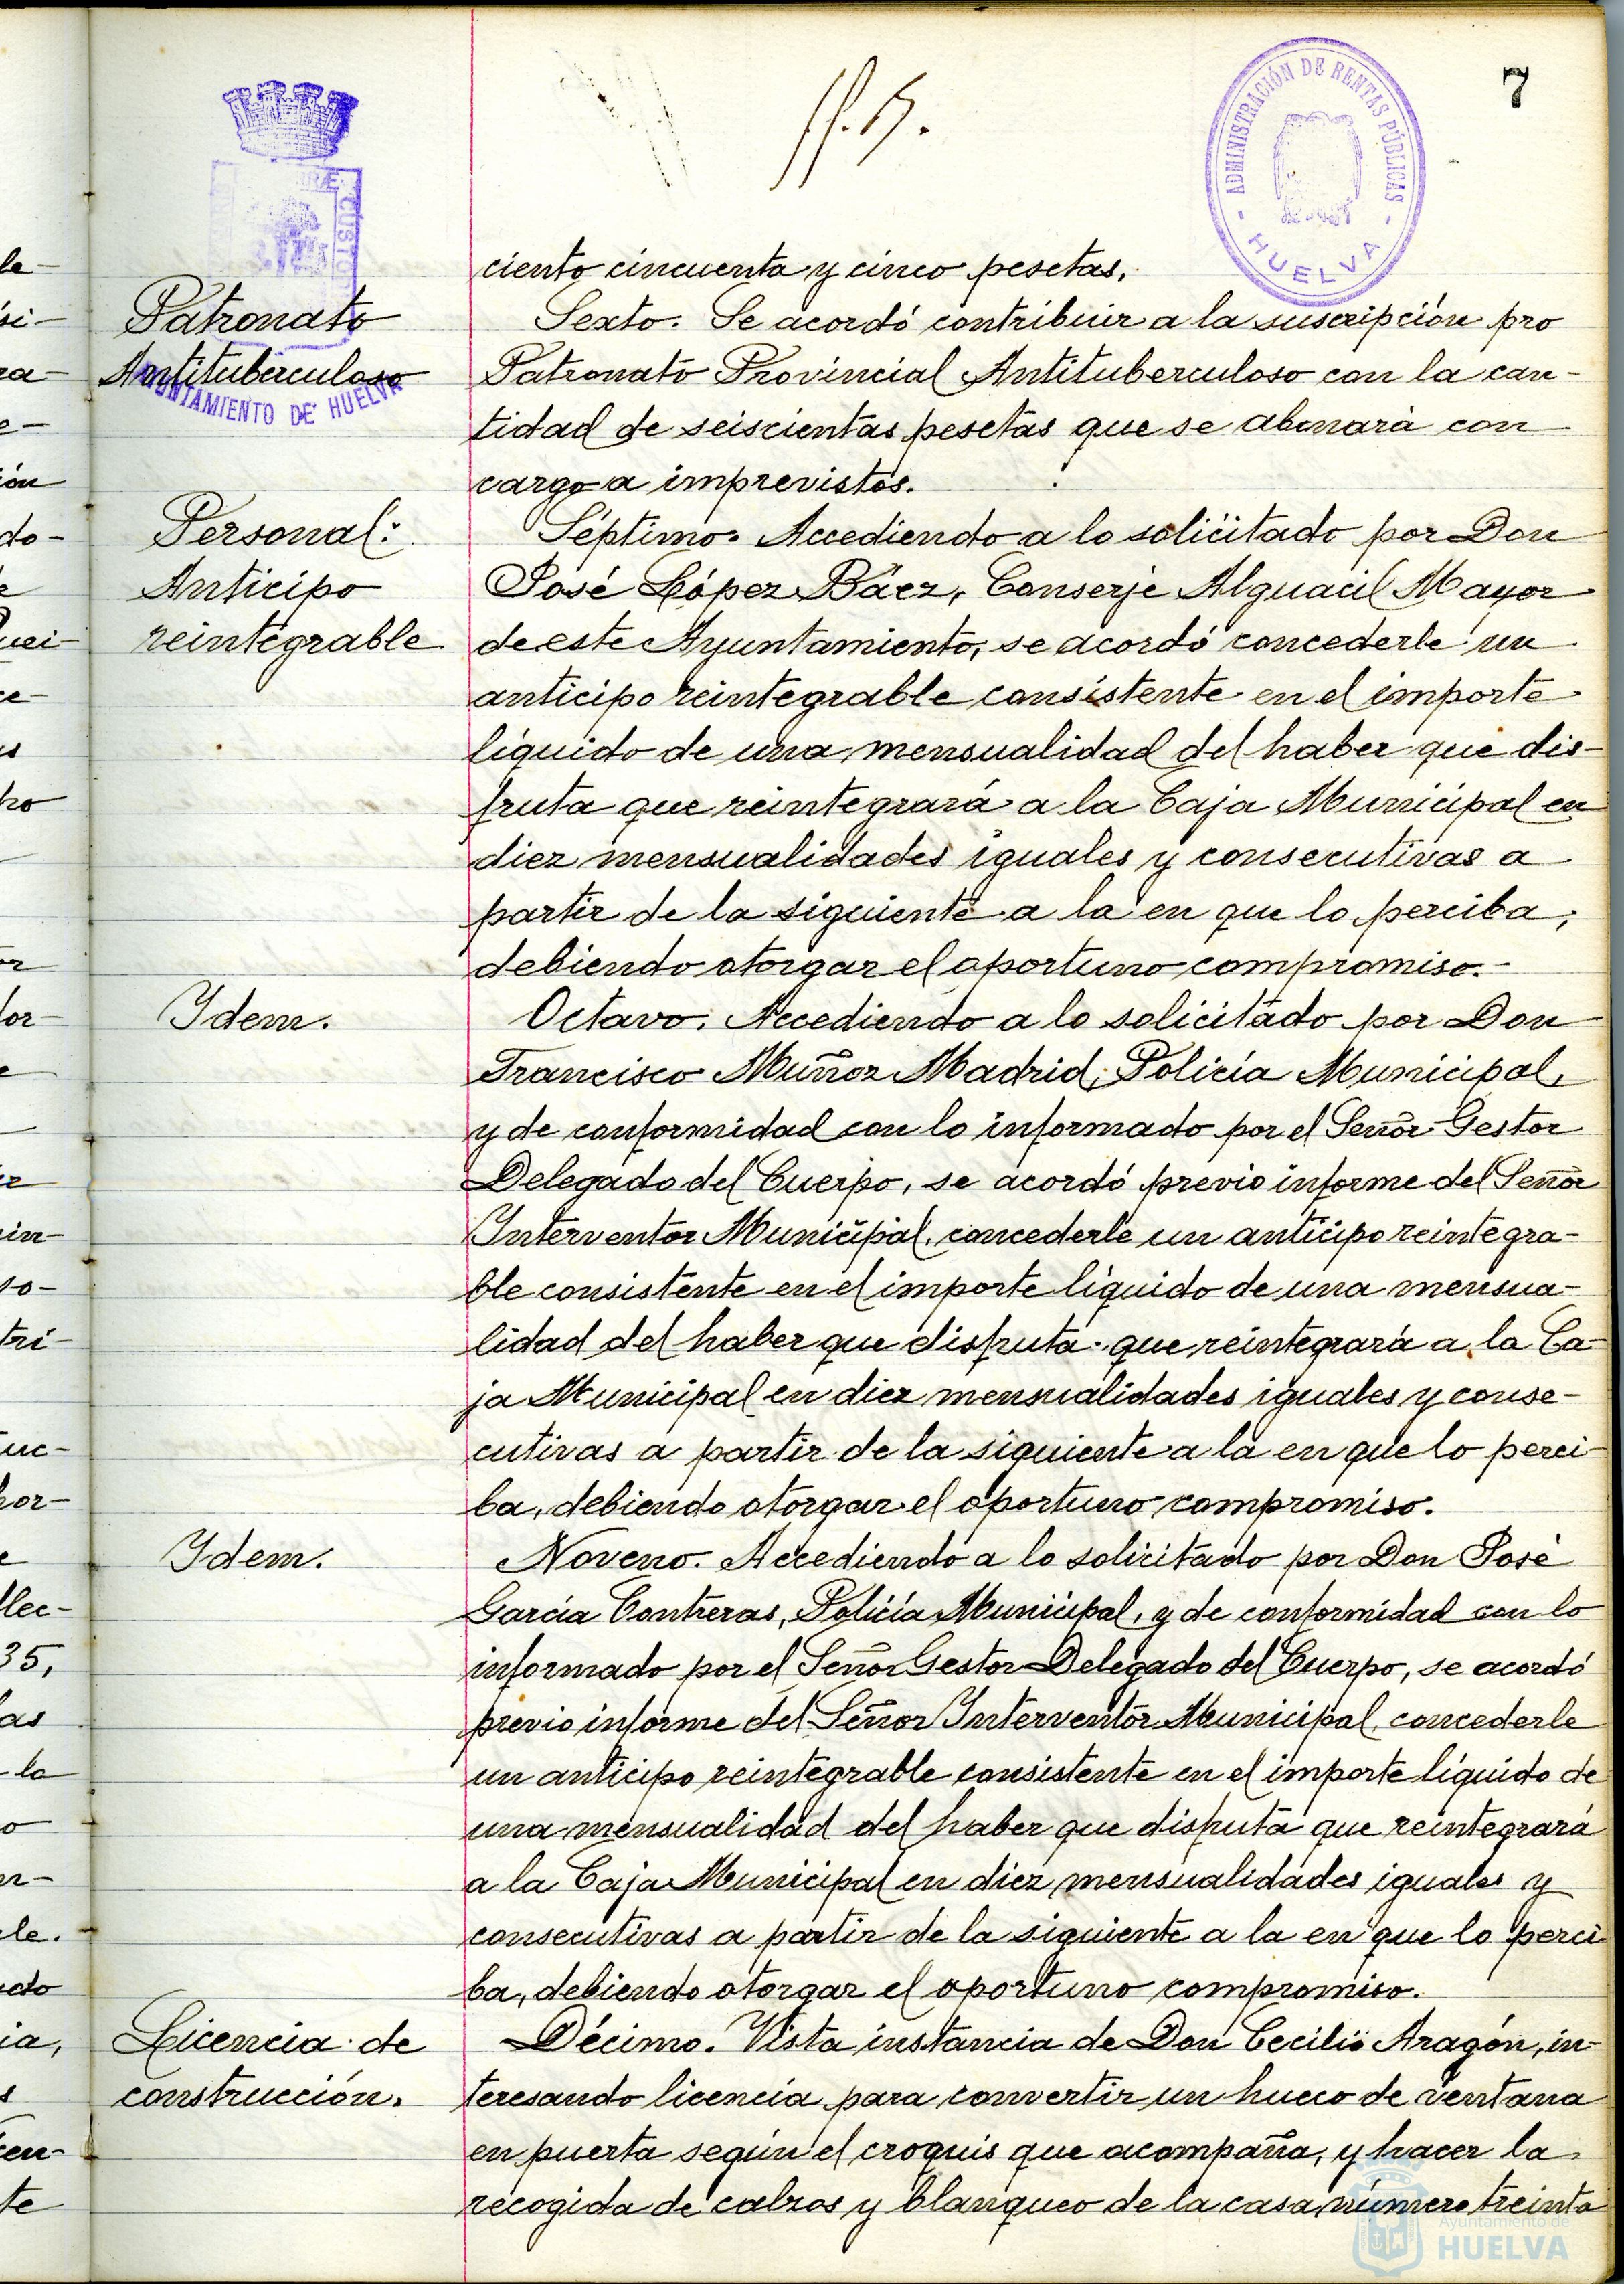 7
ADMINISTRACIÓN DE RENTAS PÚBLICAS
- HUELVA -
CUSTO
AYUNTAMIENTO DE HUELVA
ciento cincuenta y cinco pesetas.
Patronato
Antituberculoso
Sexto. Se acordó contribuir a la suscripción pro
Patronato Provincial Antituberculoso con la can-
tidad de seiscientas pesetas que se abonará con
cargo a imprevistos.
Personal:
Anticipo
reintegrable
Séptimo. Accediendo a lo solicitado por Don
José López Báez, Conserje Alguacil Mayor
de este Ayuntamiento, se acordó concederle un
anticipo reintegrable consistente en el importe
líquido de una mensualidad del haber que dis-
fruta que reintegrará a la Caja Municipal en
diez mensualidades iguales y consecutivas a
partir de la siguiente a la en que lo perciba,
debiendo otorgar el oportuno compromiso.-
Idem.
Octavo. Accediendo a lo solicitado por Don
Francisco Muñoz Madrid, Policía Municipal,
y de conformidad con lo informado por el Señor Gestor
Delegado del Cuerpo, se acordó previo informe del Señor
Interventor Municipal, concederle un anticipo reintegra-
ble consistente en el importe líquido de una mensua-
lidad del haber que disfruta que reintegrará a la Ca-
ja Municipal en diez mensualidades iguales y conse-
cutivas a partir de la siguiente a la en que lo perci
ba, debiendo otorgar el oportuno compromiso.
Idem.
Noveno. Accediendo a lo solicitado por Don José
García Contreras, Policía Municipal, y de conformidad con lo
informado por el Señor Gestor Delegado del Cuerpo, se acordó
previo informe del Señor Interventor Municipal, concederle
un anticipo reintegrable consistente en el importe líquido de
una mensualidad del haber que disfruta que reintegrará
a la Caja Municipal en diez mensualidades iguales y
consecutivas a partir de la siguiente a la en que lo perci
ba, debiendo otorgar el oportuno compromiso.
Licencia de
construcción.
Décimo. Vista instancia de Don Cecilio Aragón, in-
teresando licencia para convertir un hueco de ventana
en puerta según el croquis que acompaña, y hacer la
recogida de calzos y blanqueo de la casa número treinta
Ayuntamiento de
HUELVA